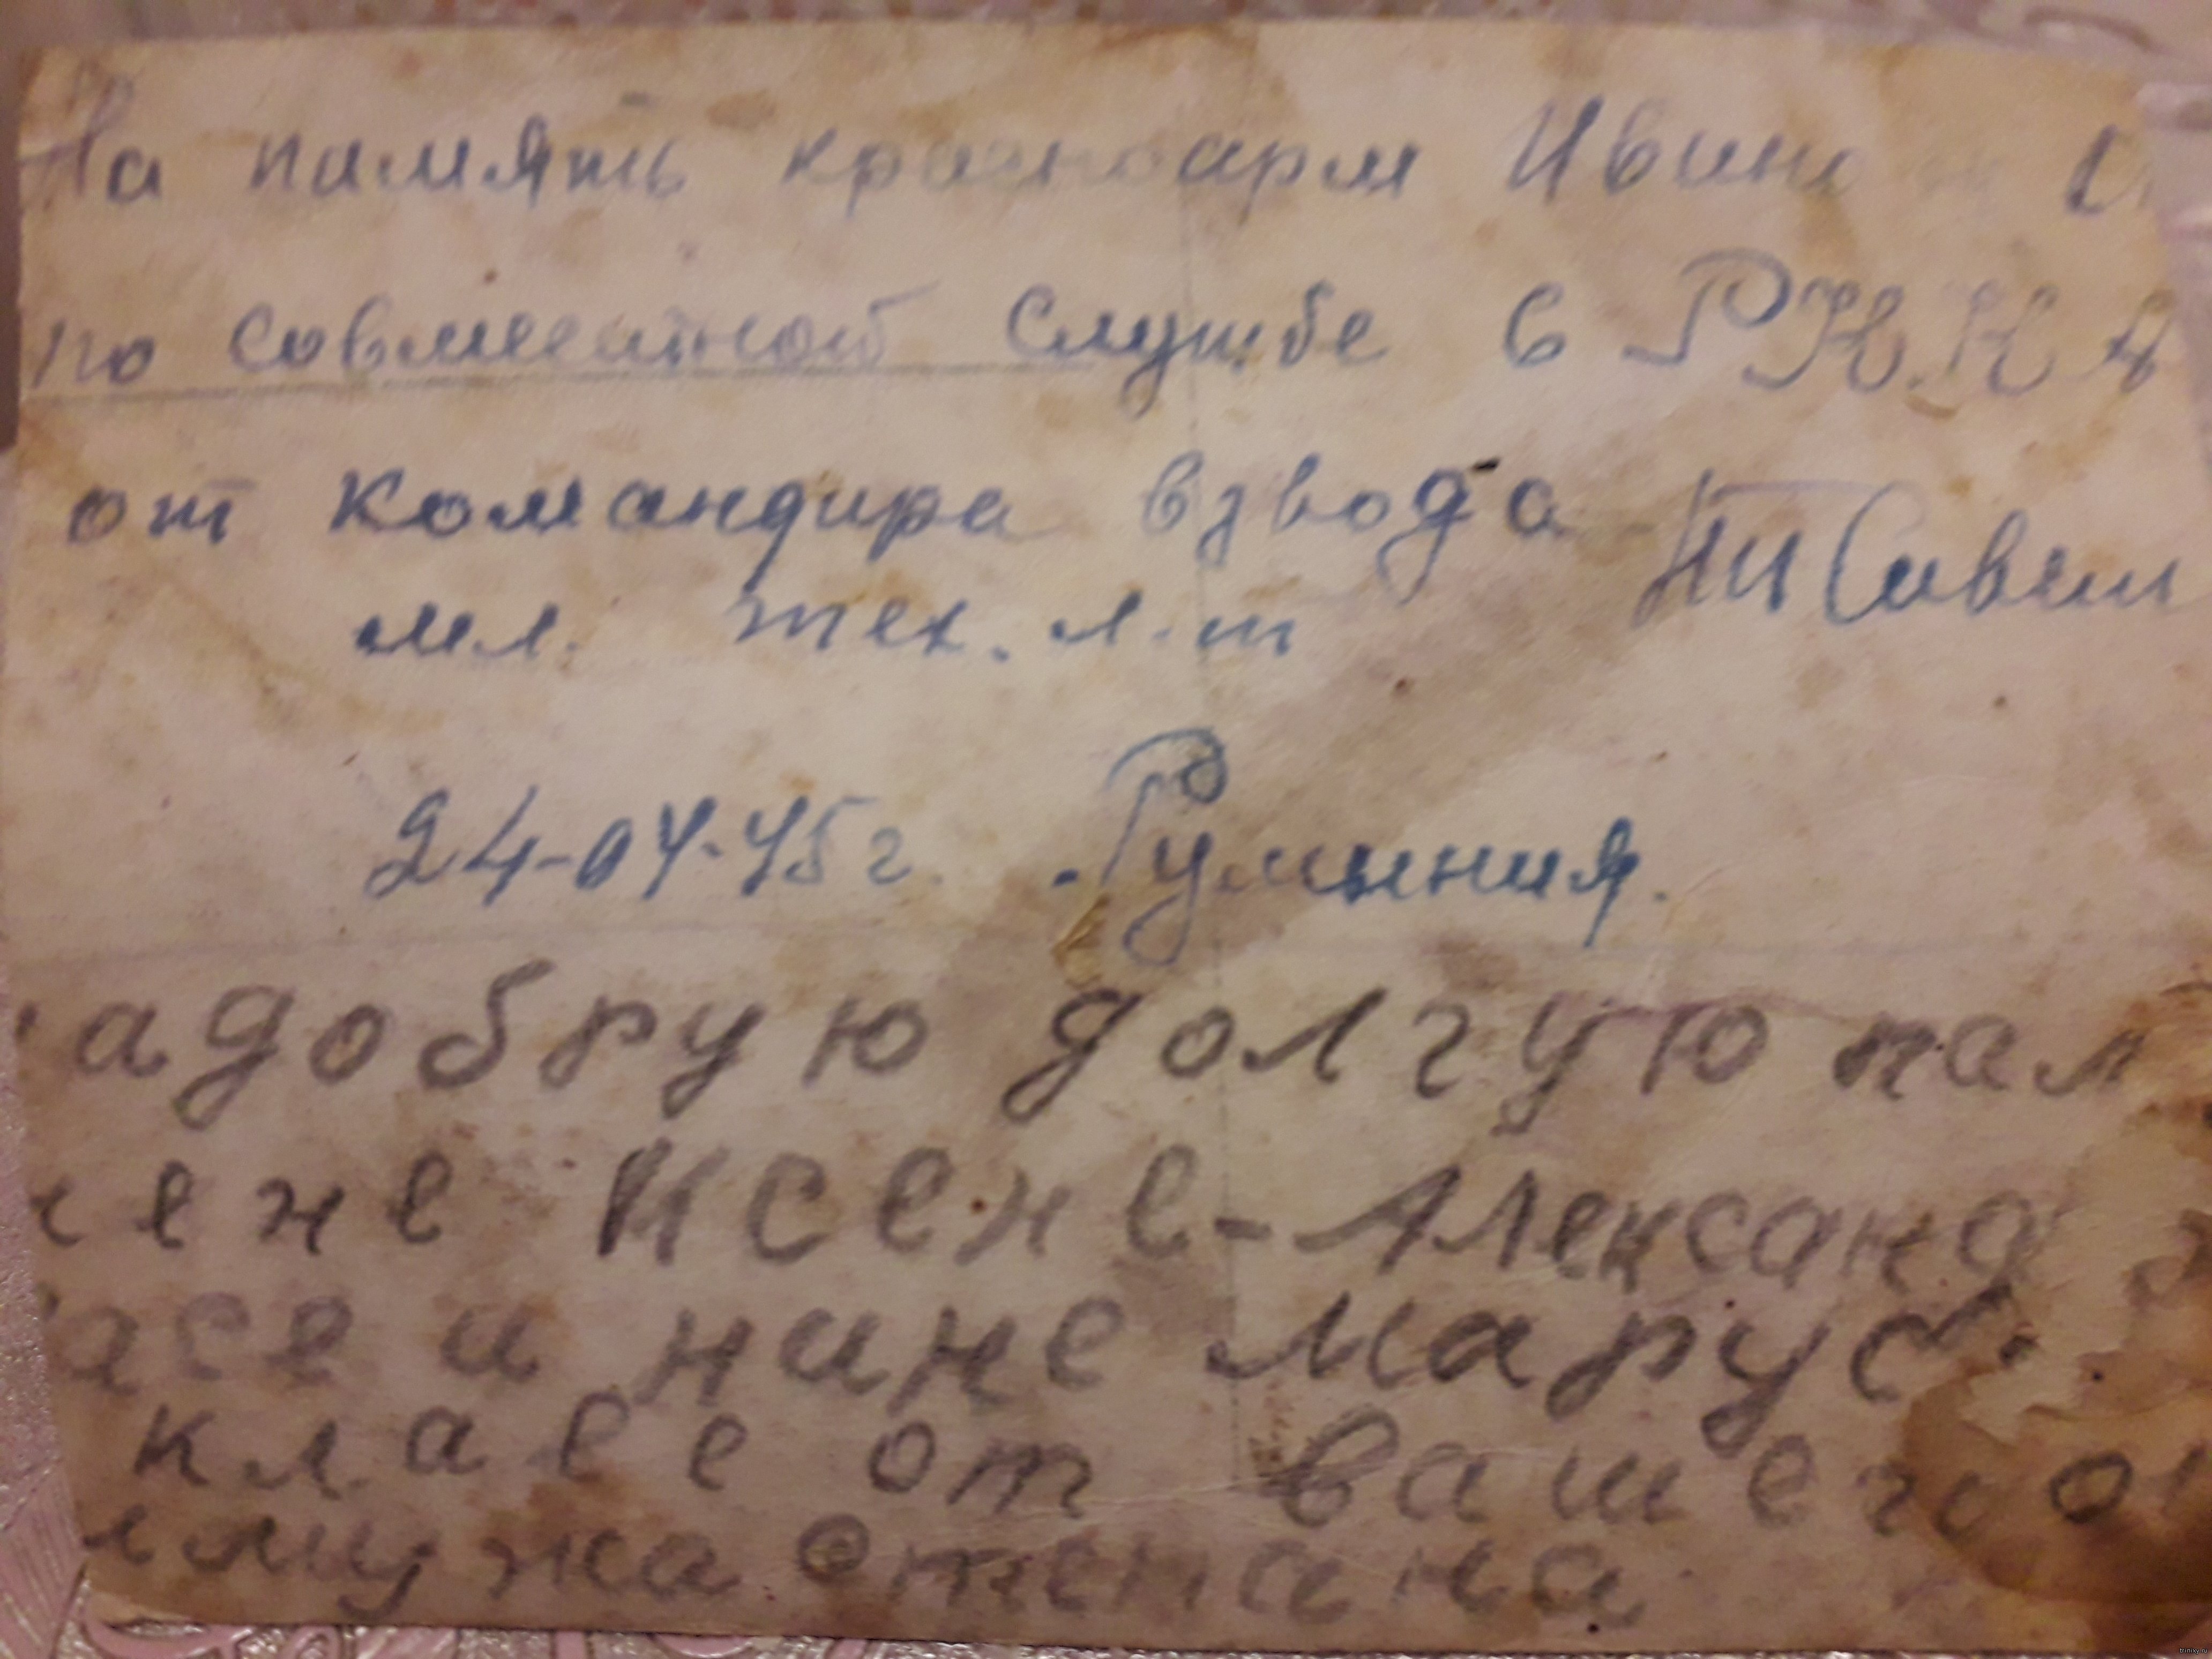 На память красноарм
по совместной службе в РККА
от командира взвода
мл. тех. л-т
24-04-45г. Румыния.
адобрую долгую пам
ене Ксене-Александ
асе и нине Марус
клаве от вашего
мужа
trinixy.ru